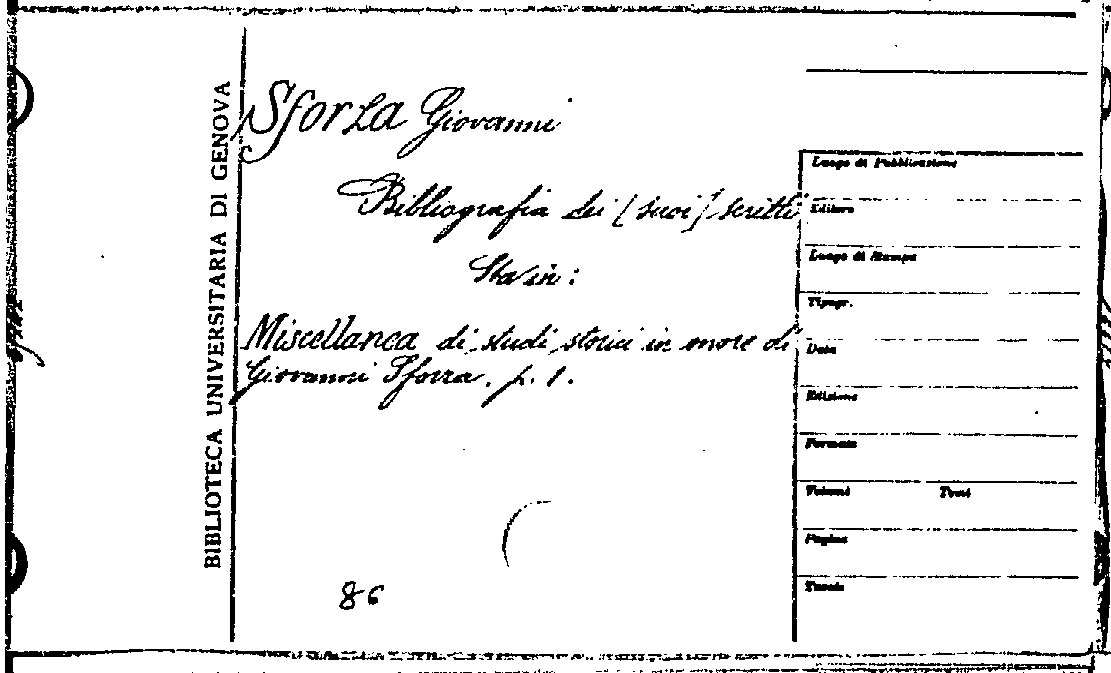 BIBLIOTECA UNIVERSITARIA DI GENOVA
Sforza Giovanni
Bibliografia dei [suoi] scritti
Sta in:
Miscellanea di studi storici in onore di
Giovanni Sforza. p. 1.
86
Luogo di Pubblicazione
Editore
Luogo di Stampa
Tipogr.
Data
Edizione
Formato
Volumi Tomi
Pagine
Tavole